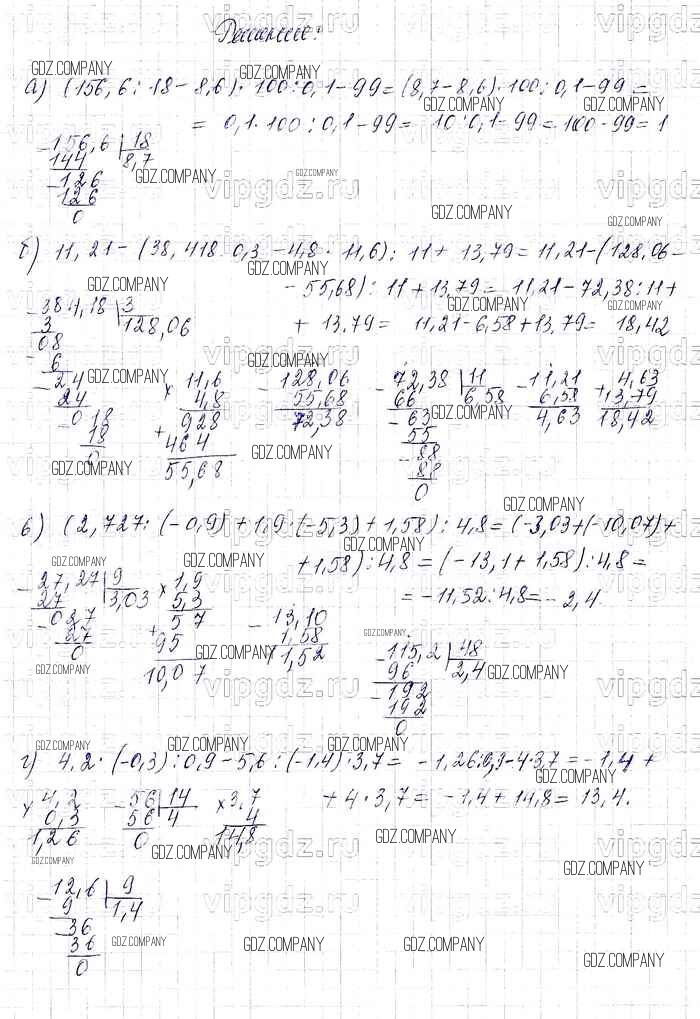 Решение:
а) (156,6 : 18 - 8,6) · 100 : 0,1 - 99 = (8,7 - 8,6) · 100 : 0,1 - 99 =
= 0,1 · 100 : 0,1 - 99 = 10 : 0,1 - 99 = 100 - 99 = 1
-156,6 | 18
144 8,7
-126
126
0
б) 11,21 - (38,418 : 0,3 - 4,8 · 11,6) : 11 + 13,79 = 11,21 - (128,06 -
- 55,68) : 11 + 13,79 = 11,21 - 72,38 : 11 +
+ 13,79 = 11,21 - 6,58 + 13,79 = 18,42
-384,18 | 3
3 128,06
08
6
-24
24
-018
18
0
× 11,6
4,8
928
+ 464
55,68
-128,06
55,68
72,38
-72,38 | 11
66 6,58
-63
55
-88
88
0
-11,21
6,58
4,63
+ 4,63
13,79
18,42
в) (2,727 : (-0,9) + 1,9 · (-5,3) + 1,58) : 4,8 = (-3,03 + (-10,07) +
+ 1,58) : 4,8 = (-13,1 + 1,58) : 4,8 =
= -11,52 : 4,8 = -2,4.
-27,27 | 9
27 3,03
-027
27
0
× 1,9
5,3
57
+ 95
10,07
-13,10
1,58
11,52
-115,2 | 48
96 2,4
-192
192
0
г) 4,2 · (-0,3) : 0,9 - 5,6 : (-1,4) · 3,7 = -1,26 : 0,9 - 4 · 3,7 = -1,4 +
+ 4 · 3,7 = -1,4 + 14,8 = 13,4.
× 4,2
0,3
1,26
-56 | 14
56 4
0
× 3,7
4
14,8
-12,6 | 9
9 1,4
-36
36
0
GDZ.COMPANY
vipgdz.ru